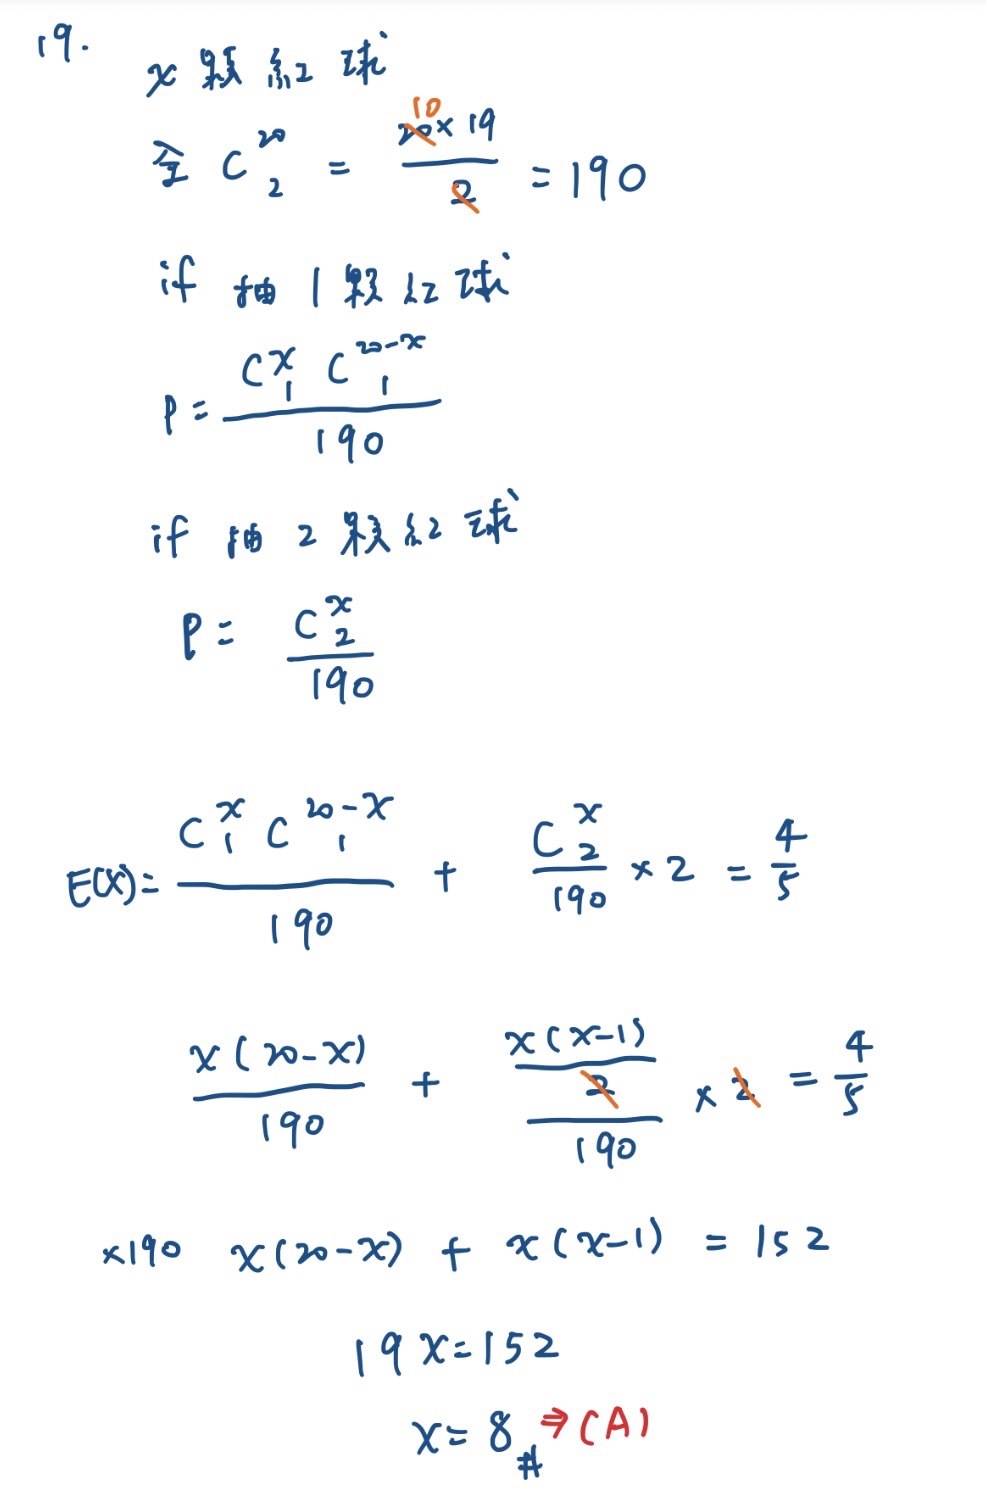 19.
x 顆紅球
全 C^{20}_{2} = \frac{20×19}{2} = 190
10
if 抽1顆紅球
P = \frac{C^{x}_{1} C^{20-x}_{1}}{190}
if 抽2顆紅球
P = \frac{C^{x}_{2}}{190}
E(X) = \frac{C^{x}_{1} C^{20-x}_{1}}{190} + \frac{C^{x}_{2}}{190} × 2 = \frac{4}{5}
\frac{x(20-x)}{190} + \frac{\frac{x(x-1)}{2}}{190} × 2 = \frac{4}{5}
×190 x(20-x) + x(x-1) = 152
19x = 152
x = 8 # ⇒ (A)